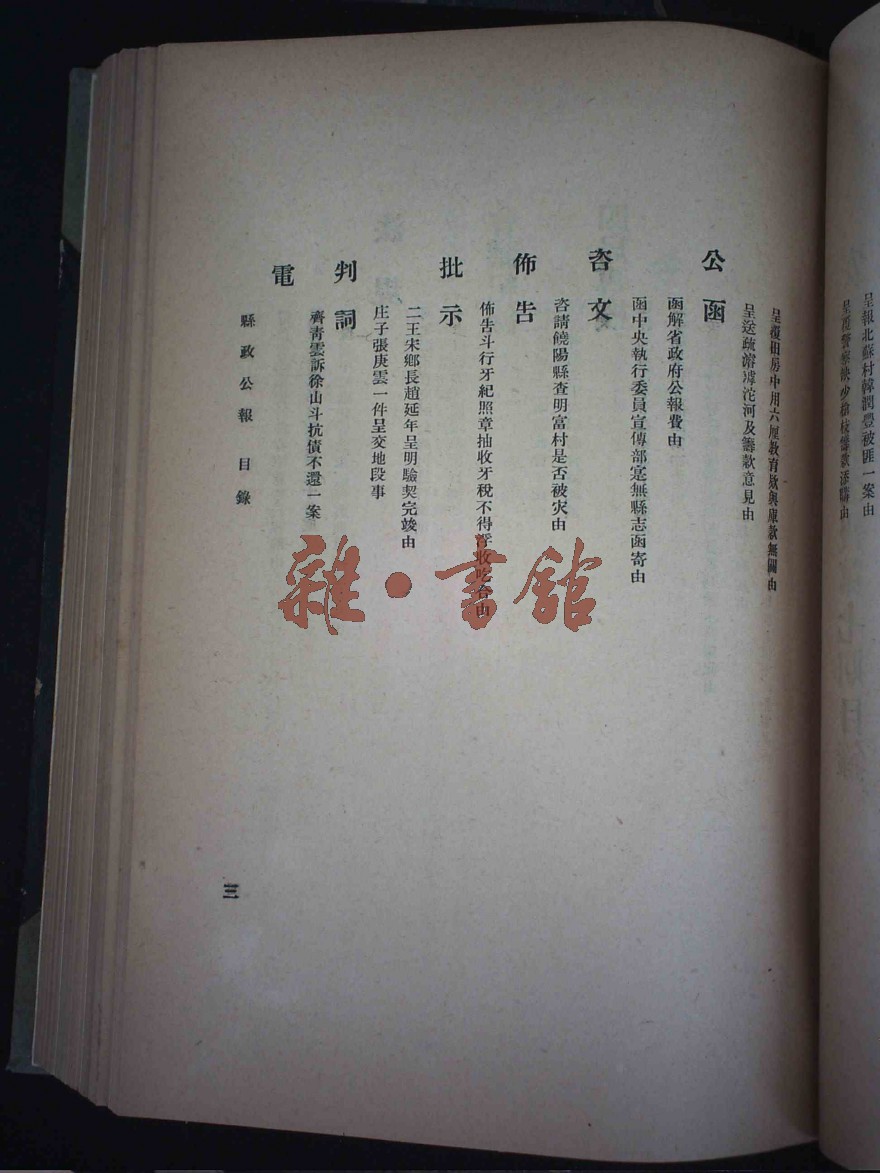 呈報北蘇村韓潤豐被匪一案由
呈覆警察缺少槍枝籌款添購由
呈復田房中用六厘教育欵與庫款無關由
呈送疏濬滹沱河及籌款意見由
公函
函解省政府公報費由
函中央執行委員宣傳部寔無縣志函寄由
咨文
咨請饒陽縣查明富村是否被灾由
佈告
佈告斗行牙紀照章抽收牙稅不得浮收吃合由
批示
二王宋鄉長趙延年呈明驗契完竣由
庄子張庚雲一件呈交地段事
判詞
齊靑雲訴徐山斗抗債不還一案
電
縣政公報 目錄
三
雜·書館